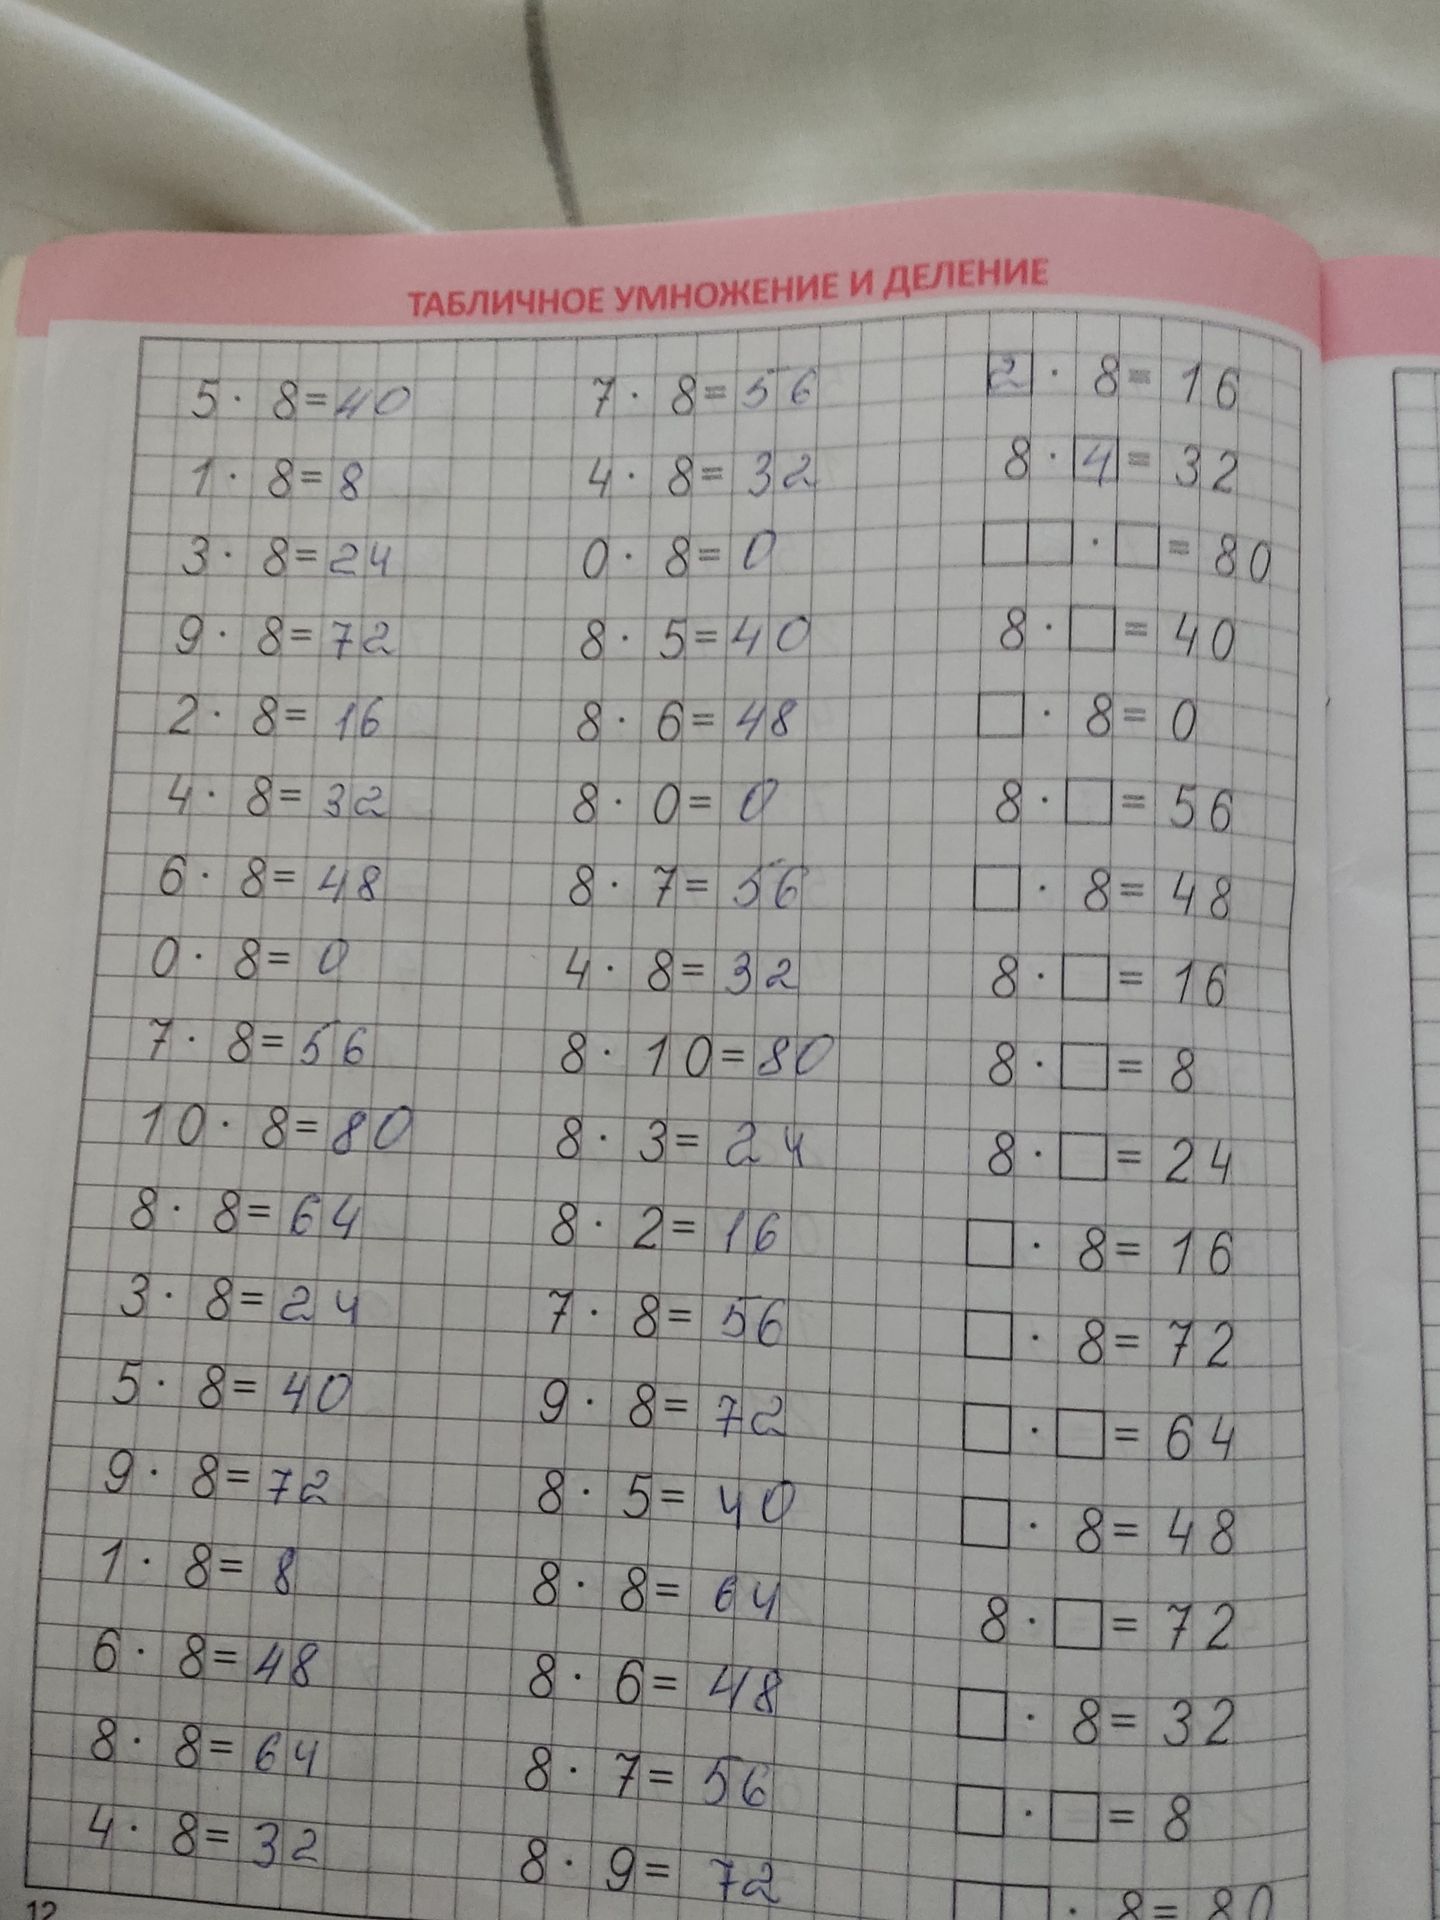 ТАБЛИЧНОЕ УМНОЖЕНИЕ И ДЕЛЕНИЕ
5 · 8 = 40
1 · 8 = 8
3 · 8 = 24
9 · 8 = 72
2 · 8 = 16
4 · 8 = 32
6 · 8 = 48
0 · 8 = 0
7 · 8 = 56
10 · 8 = 80
8 · 8 = 64
3 · 8 = 24
5 · 8 = 40
9 · 8 = 72
1 · 8 = 8
6 · 8 = 48
8 · 8 = 64
4 · 8 = 32
7 · 8 = 56
4 · 8 = 32
0 · 8 = 0
8 · 5 = 40
8 · 6 = 48
8 · 0 = 0
8 · 7 = 56
4 · 8 = 32
8 · 10 = 80
8 · 3 = 24
8 · 2 = 16
7 · 8 = 56
9 · 8 = 72
8 · 5 = 40
8 · 8 = 64
8 · 6 = 48
8 · 7 = 56
8 · 9 = 72
2 · 8 = 16
8 · 4 = 32
□□ · □ = 80
8 · □ = 40
□ · 8 = 0
8 · □ = 56
□ · 8 = 48
8 · □ = 16
8 · □ = 8
8 · □ = 24
□ · 8 = 16
□ · 8 = 72
□ · □ = 64
□ · 8 = 48
8 · □ = 72
□ · 8 = 32
□ · □ = 8
□□ · 8 = 80
12